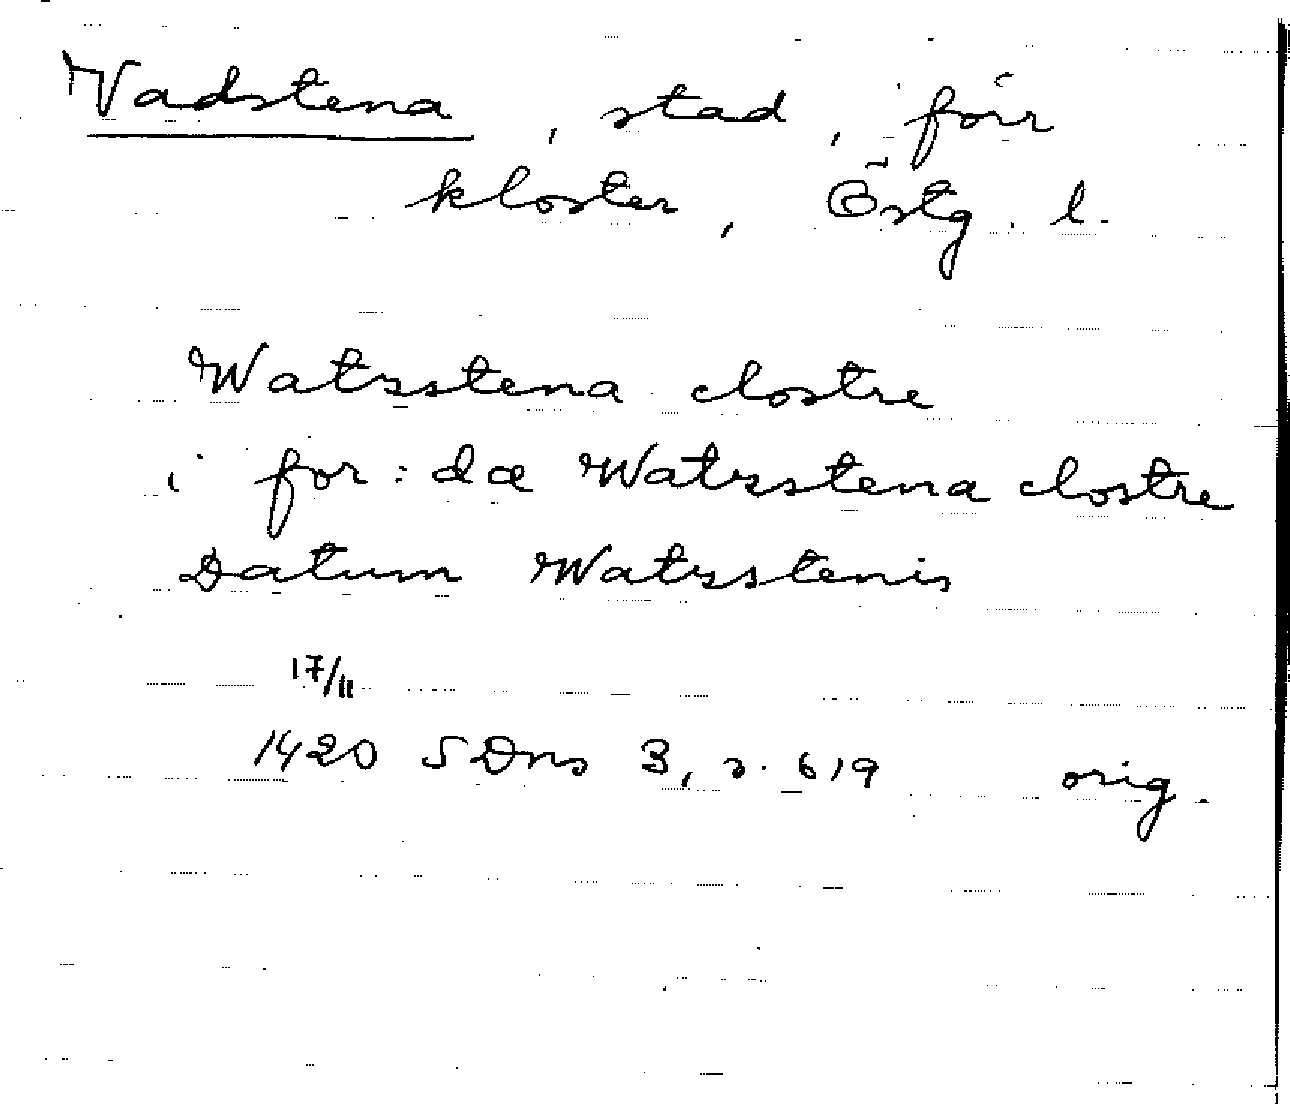 Vadstena, stad, förr
kloster, Östg. l.
Watzstena clostre
i for: dæ Watzstena clostre
Datum Watzstenis
17/11
1420 SDns 3, s. 619 orig.